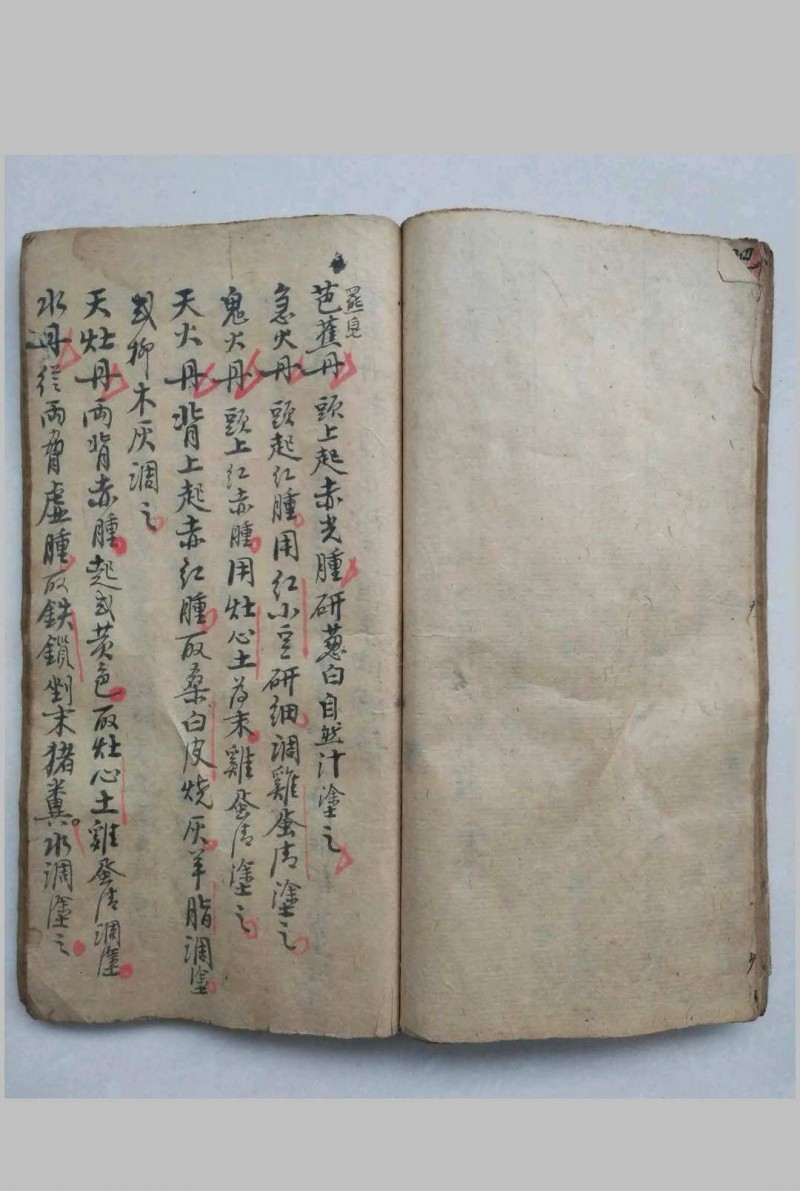 芭蕉丹頭上起赤光腫研蔥白自然汁塗之
急火丹頭起红腫用红小豆研细調雞蛋清塗之
鬼火丹頭上红赤腫用灶心土为末雞蛋清塗之
天火丹背上起赤红腫取桑白皮烧灰羊脂調塗
或柳木灰調之
天灶丹两背赤腫起或黄色取灶心土雞蛋清調塗
水丹從两脅虚腫取鉄鎖剉末猪粪水調塗之